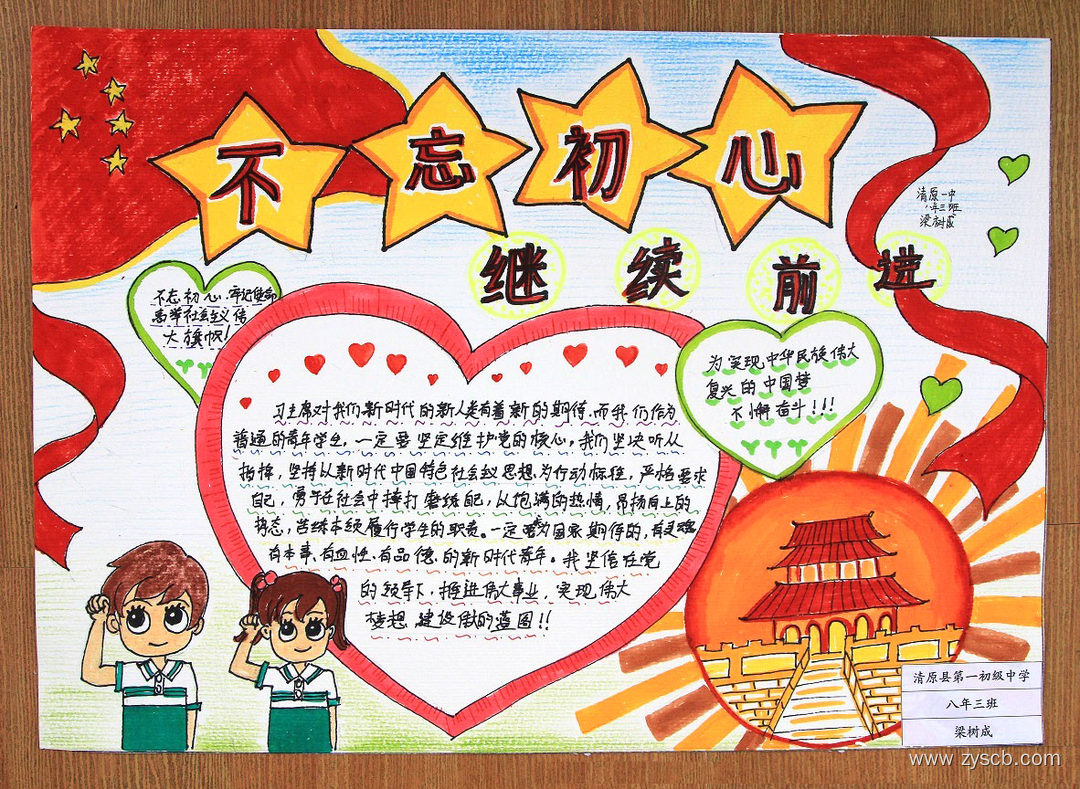 不忘初心
继续前进
清原一中
八年三班
梁树成
不忘初心,牢记使命
高举社会主义伟
大旗帜!
为实现中华民族伟大
复兴的中国梦
不懈奋斗!!!
习主席对我们新时代的新人类有着新的期待,而我们作为
普通的青年学生,一定要坚定维护党的核心。我们坚决听从
指挥,坚持以新时代中国特色社会主义思想为行动标准,严格要求
自己,勇于在社会中摔打磨练自己,以饱满的热情,昂扬向上的
姿态,苦练本领履行学生的职责。一定要为国家期待的,有灵魂
有本事、有血性、有品德、的新时代青年。我坚信在党
的领导下,推进伟大事业,实现伟大
梦想,建设伟大的蓝图!!
清原县第一初级中学
八年三班
梁树成
www.zyscb.com